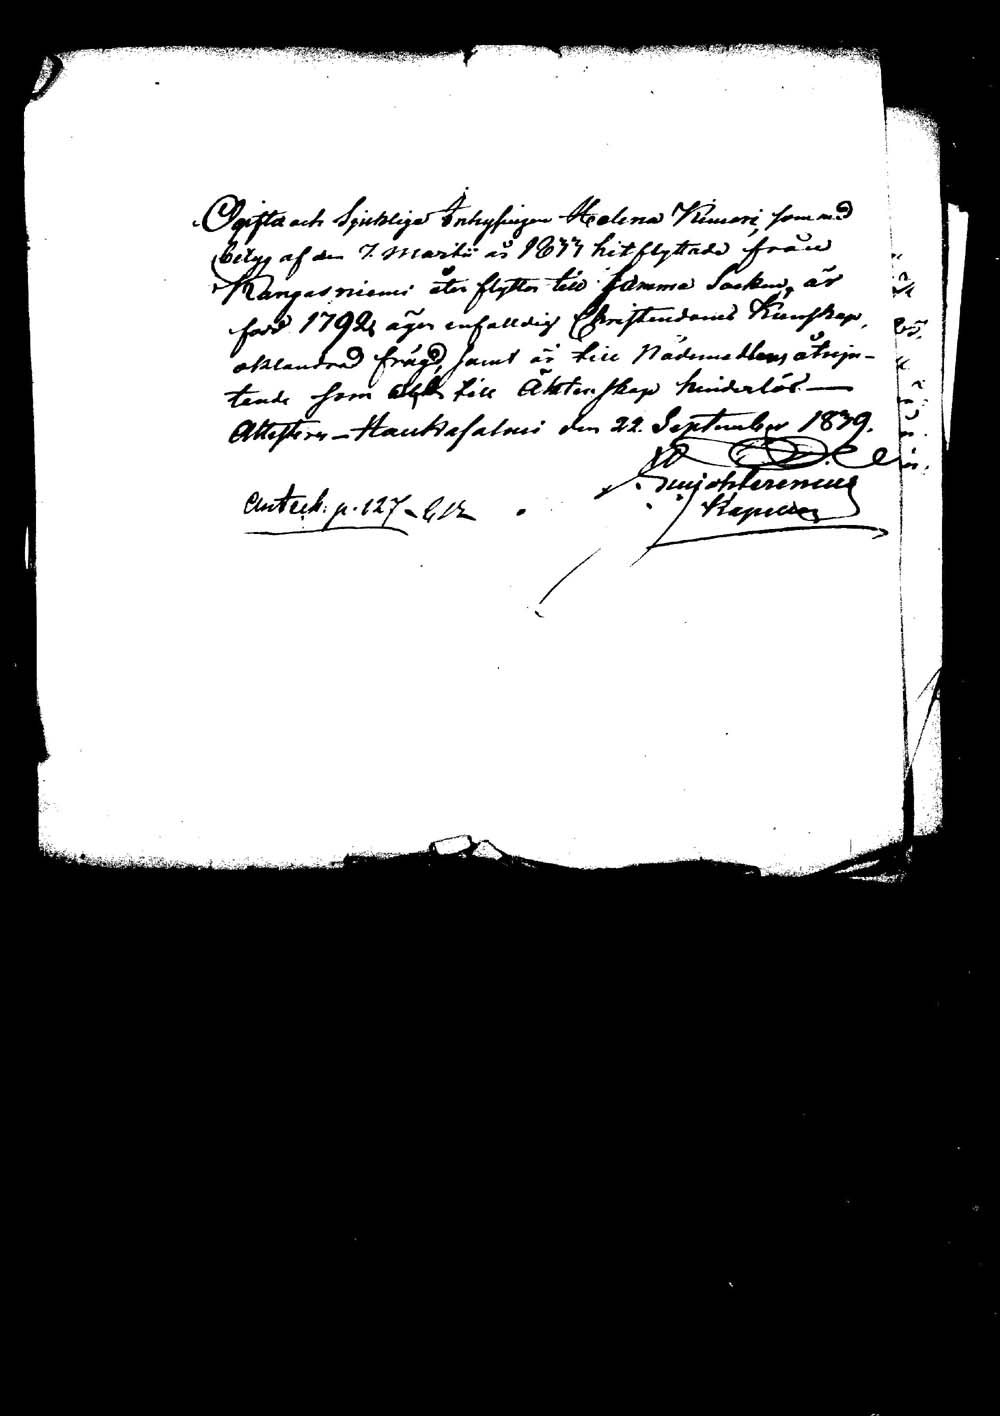 Ogifta och Sjukliga Inhysingen Helena Kinnari, som med
betyg af den 7 Martii år 1833 hitflyttade från
Kangasniemi åter flyttar till samma Socken, är
född 1792, äger enfalldig Christendoms Kunskap,
oklandrad frägd, samt är till Nådemedlens åtnju-
tande som till Äktenskap hinderlös. —
Attesteras — Hankasalmi den 22 September 1839.
Kapellan
Anteckn: p. 127